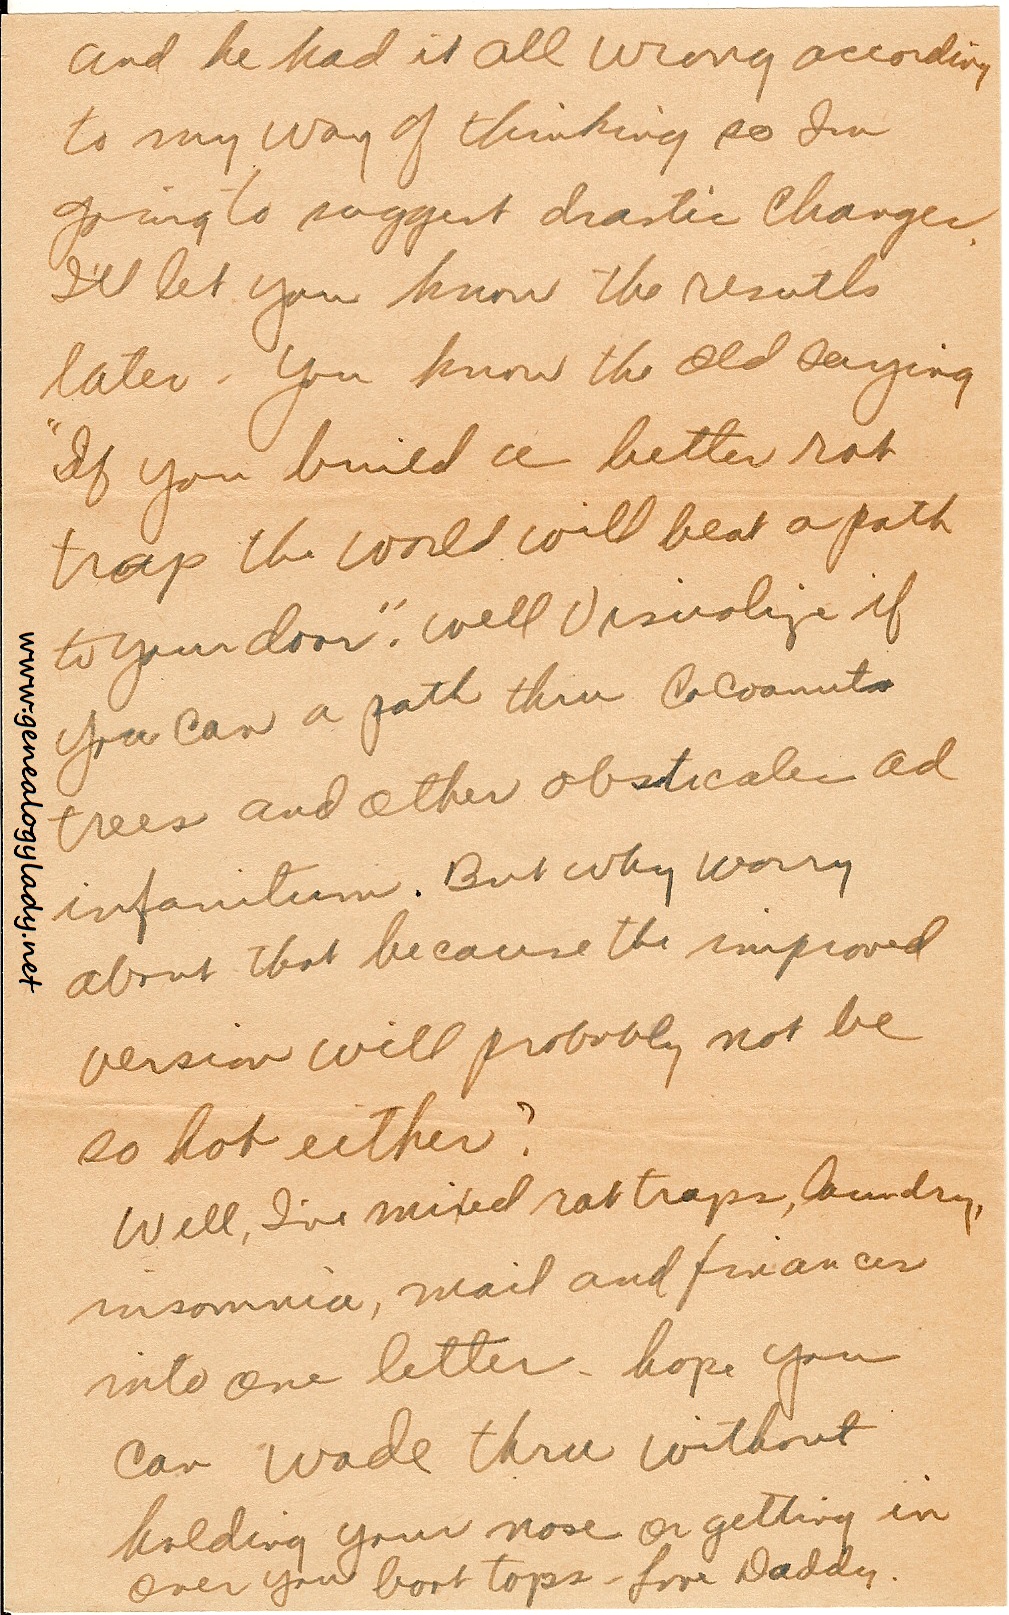 and he had it all wrong according
to my way of thinking so Im
going to suggest drastic changes.
I'll let you know the results
later - You know the old saying
"If you build a better rat
trap the world will beat a path
to your door". Well Visualize if
you can a path thru Cocoanuts
trees and other obsticales ad
infanitum. But why worry
about that because the improved
version will probably not be
so hot either?
Well, I've mixed rat traps, laundry,
insomnia, mail and finances
into one letter - hope you
can wade thru without
holding your nose or getting in
over you boot tops - Love Daddy.
www.genealogylady.net